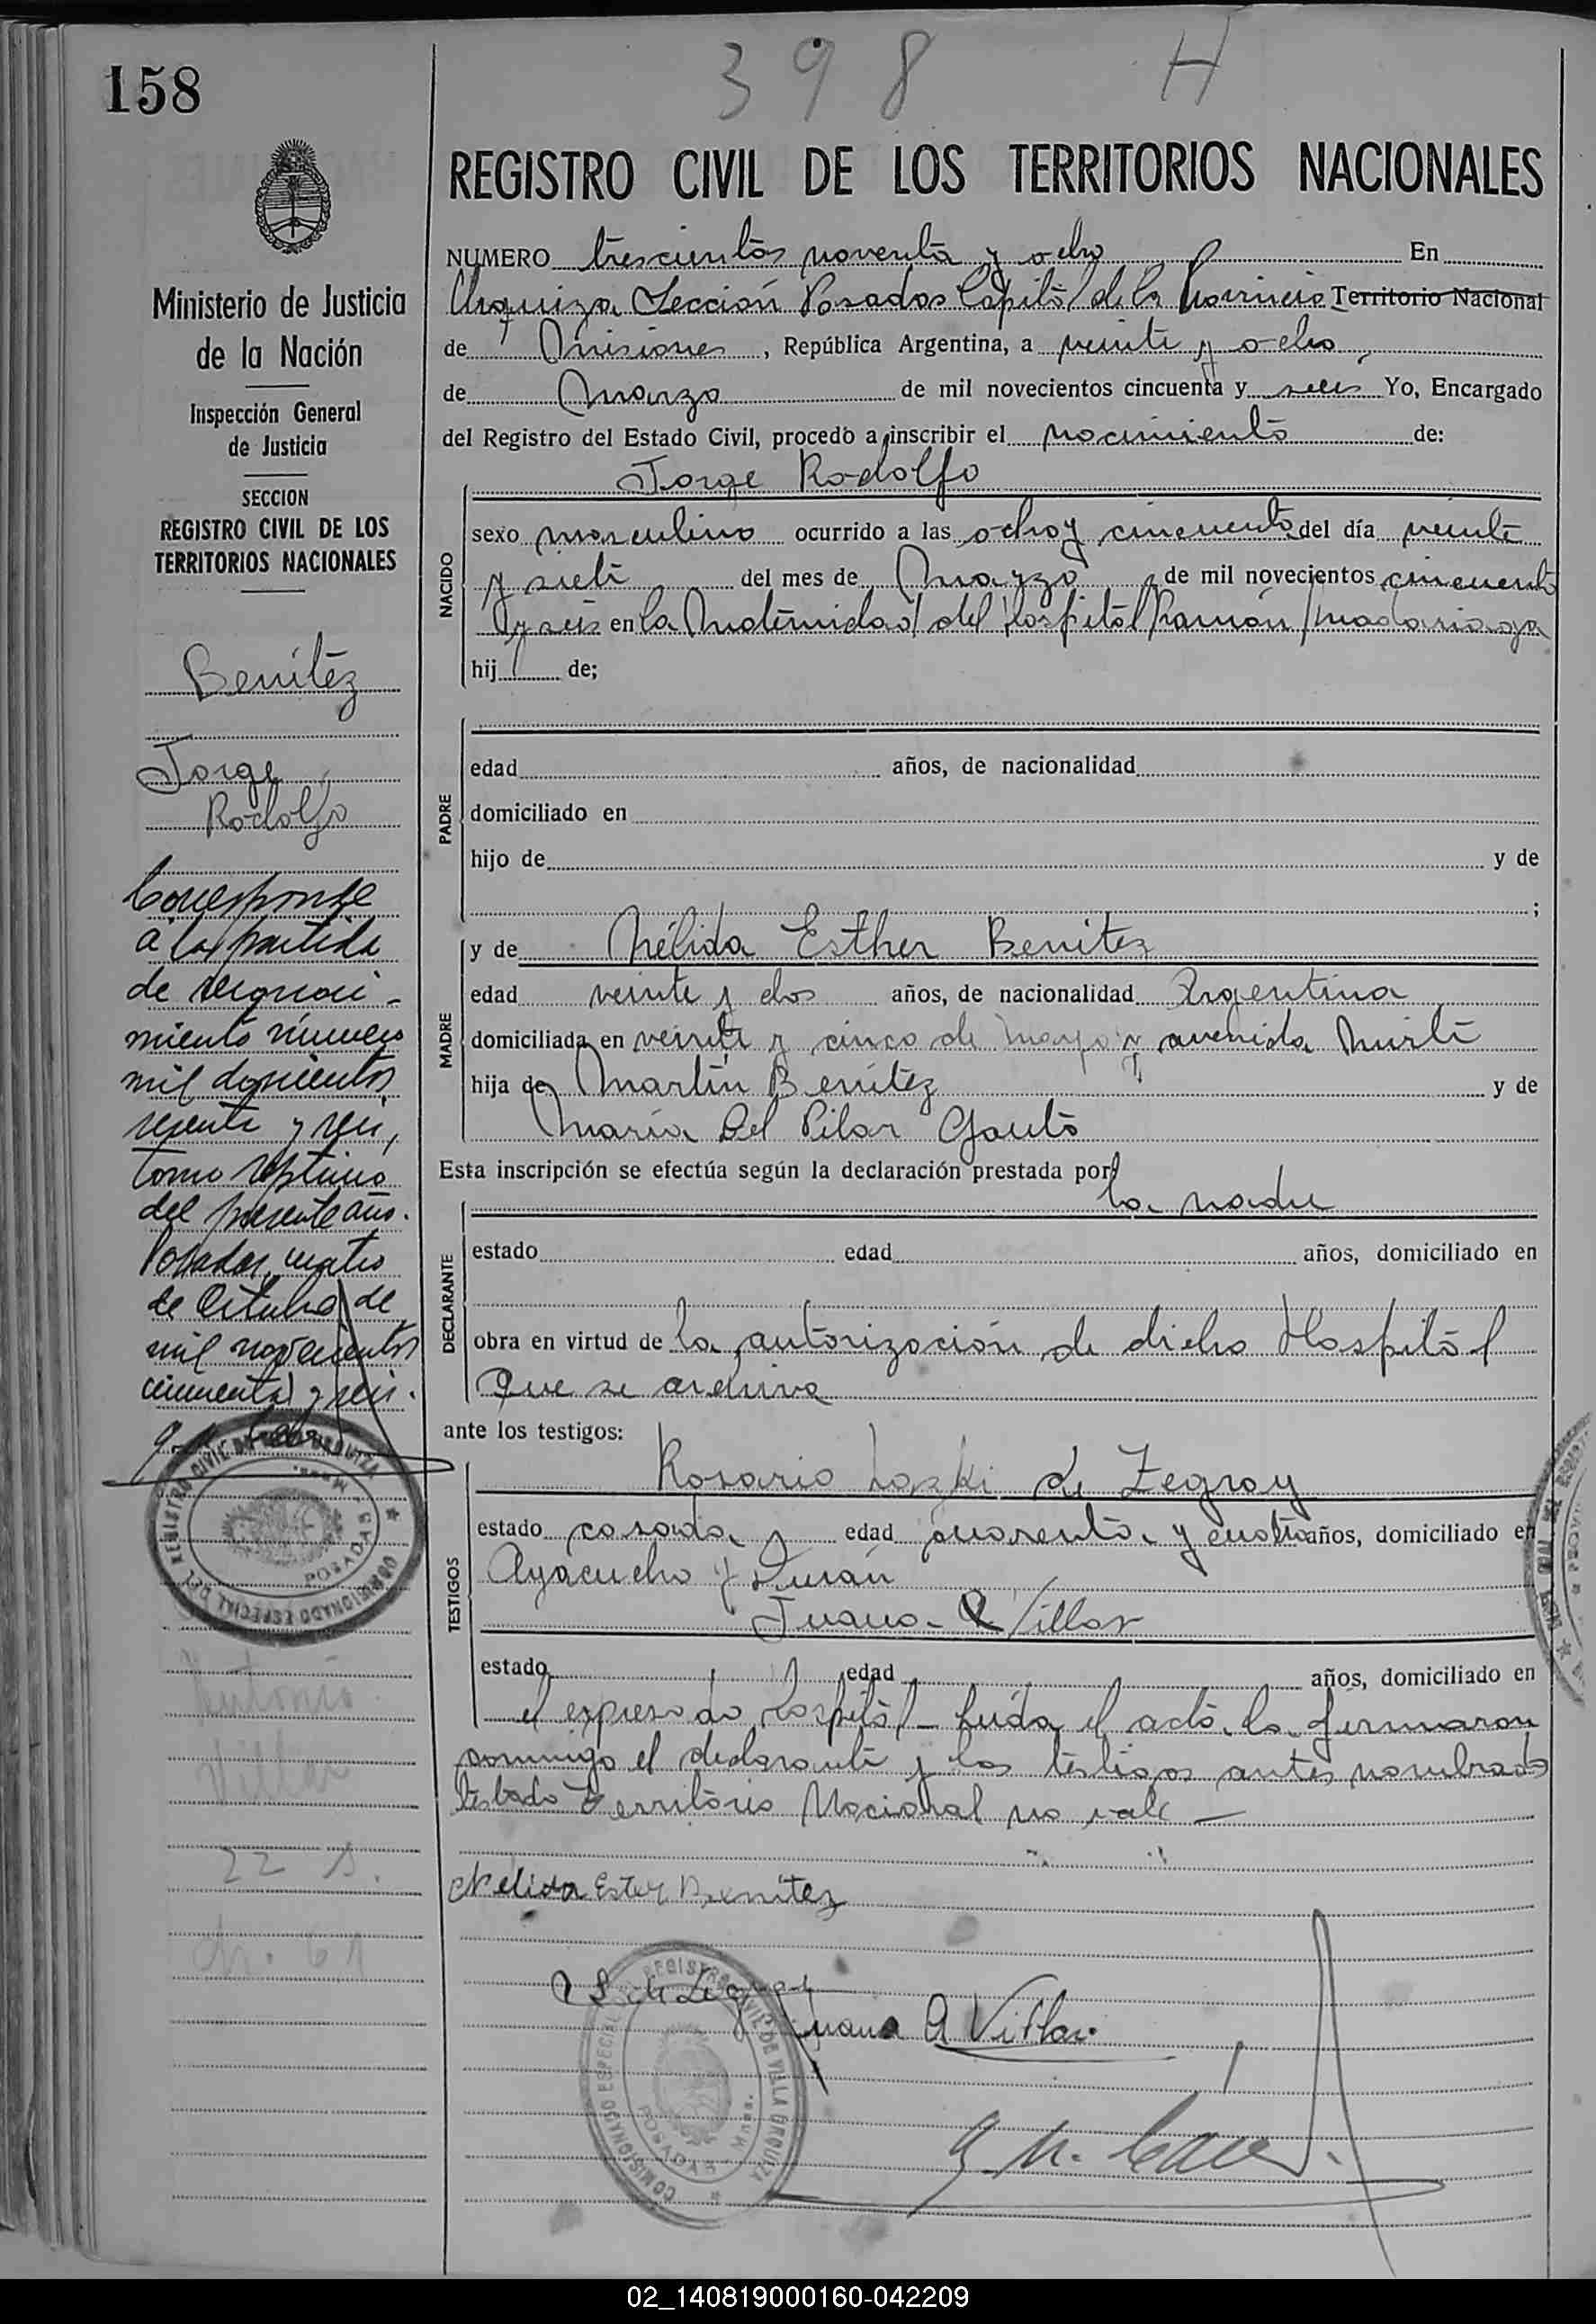 398 H
158
REGISTRO CIVIL DE LOS TERRITORIOS NACIONALES
Ministerio de Justicia
de la Nación
Inspección General
de Justicia
SECCION
REGISTRO CIVIL DE LOS
TERRITORIOS NACIONALES
Benítez
Jorge
Rodolfo
Corresponde
a la partida
de reconoci-
miento número
mil doscientos
sesenta y seis,
tomo séptimo
del presente año.
Posadas, cuatro
de Octubre de
mil novecientos
cincuenta y seis.
REGISTRO CIVIL DE URQUIZA
COMISIONADO ESPECIAL DEL
POSADAS
Antonio
Villar
22
61
NUMERO trescientos noventa y ocho En
Urquiza Sección Posadas Capital de la Provincia Territorio Nacional
de Misiones, República Argentina, a veinte y ocho
de Marzo de mil novecientos cincuenta y seis Yo, Encargado
del Registro del Estado Civil, procedo a inscribir el nacimiento de:
NACIDO
Jorge Rodolfo
sexo masculino ocurrido a las ocho y cincuenta del día veinte
y siete del mes de Marzo de mil novecientos cincuenta
y seis en la Maternidad del Hospital Ramón Madariaga
hij de;
PADRE
edad años, de nacionalidad
domiciliado en
hijo de y de
;
MADRE
y de Nélida Esther Benítez
edad veinte y dos años, de nacionalidad Argentina
domiciliada en veinte y cinco de mayo y avenida Mitre
hija de Martín Benítez y de
María Del Pilar Gauto
Esta inscripción se efectúa según la declaración prestada por
la madre
DECLARANTE
estado edad años, domiciliado en
obra en virtud de la autorización de dicho Hospital
que se archiva
ante los testigos:
TESTIGOS
Rosario de Zegray
estado casada edad cuarenta y cuatro años, domiciliado en
Ayacucho y
Juana A Villar
estado edad años, domiciliado en
el expresado hospital leída el acta la firmaron
conmigo el declarante y los testigos antes nombrados
testado Territorio Nacional no vale
Nelida Ester Benitez
R de Zegray
Juana A Villar
COMISIONADO ESPECIAL REGISTRO CIVIL DE VILLA URQUIZA
POSADAS Mnes.
02_140819000160-042209